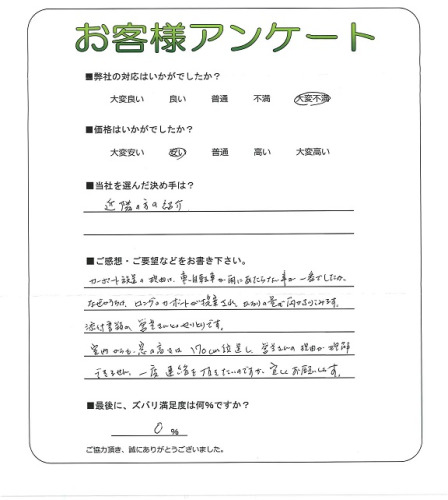 お客様アンケート
■弊社の対応はいかがでしたか?
大変良い 良い 普通 不満 大変不満
■価格はいかがでしたか?
大変安い 安い 普通 高い 大変高い
■当社を選んだ決め手は?
近隣の方の紹介
■ご感想・ご要望などをお書き下さい。
カーポート設置の理由は、車、自転車が雨にあたらない事が一番でしたが、
なぜか ロング カーポートが提案され、
添付書類の、営業さんとのやりとりです。
室内からも、窓の高さは170cm 営業さんの理由が理解
できません。一度連絡を頂きたいのですが、宜しくお願いします。
■最後に、ズバリ満足度は何%ですか?
0 %
ご協力頂き、誠にありがとうございました。